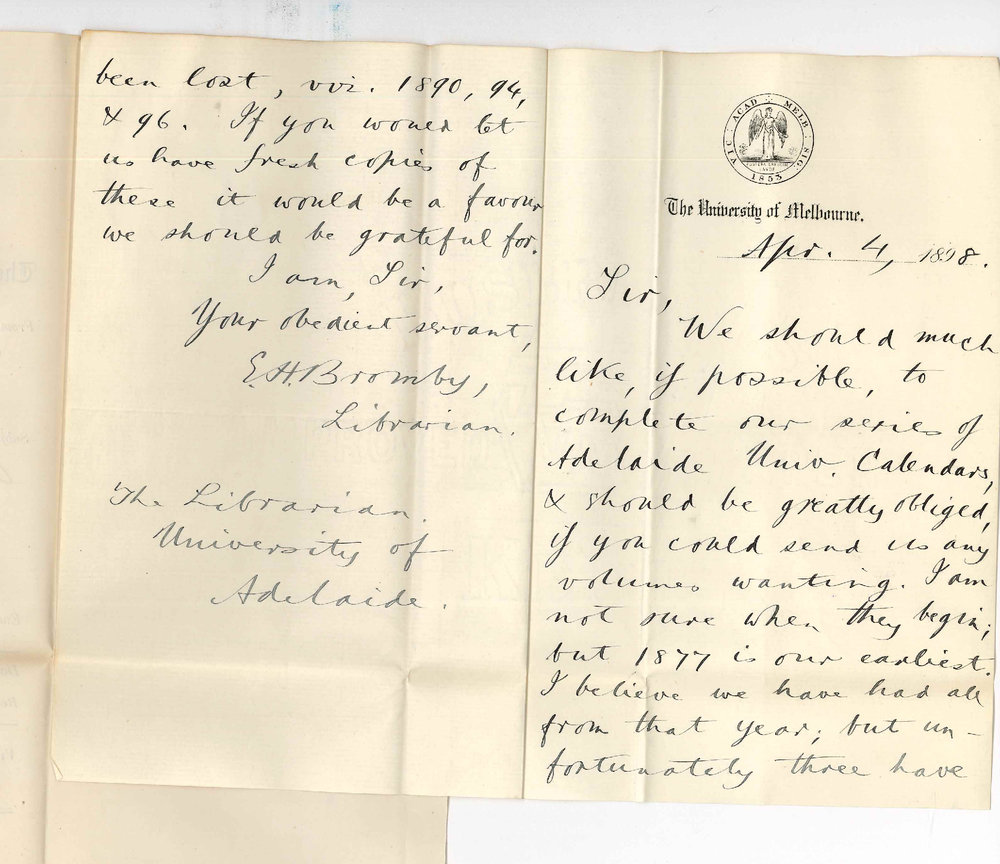 VIC · ACAD · MELB · SIG ·
1853
The University of Melbourne.
Apr. 4, 1898.
Sir,
We should much
like, if possible, to
complete our series of
Adelaide Univ Calendars,
& should be greatly obliged,
if you could send us any
volumes wanting. I am
not sure when they begin;
but 1877 is our earliest.
I believe we have had all
from that year; but un-
fortunately three have
been lost, viz. 1890, 94,
& 96. If you would let
us have fresh copies of
these it would be a favour
we should be grateful for.
I am, Sir,
Your obedient servant,
E.H.Bromby,
Librarian.
The Librarian.
University of
Adelaide.